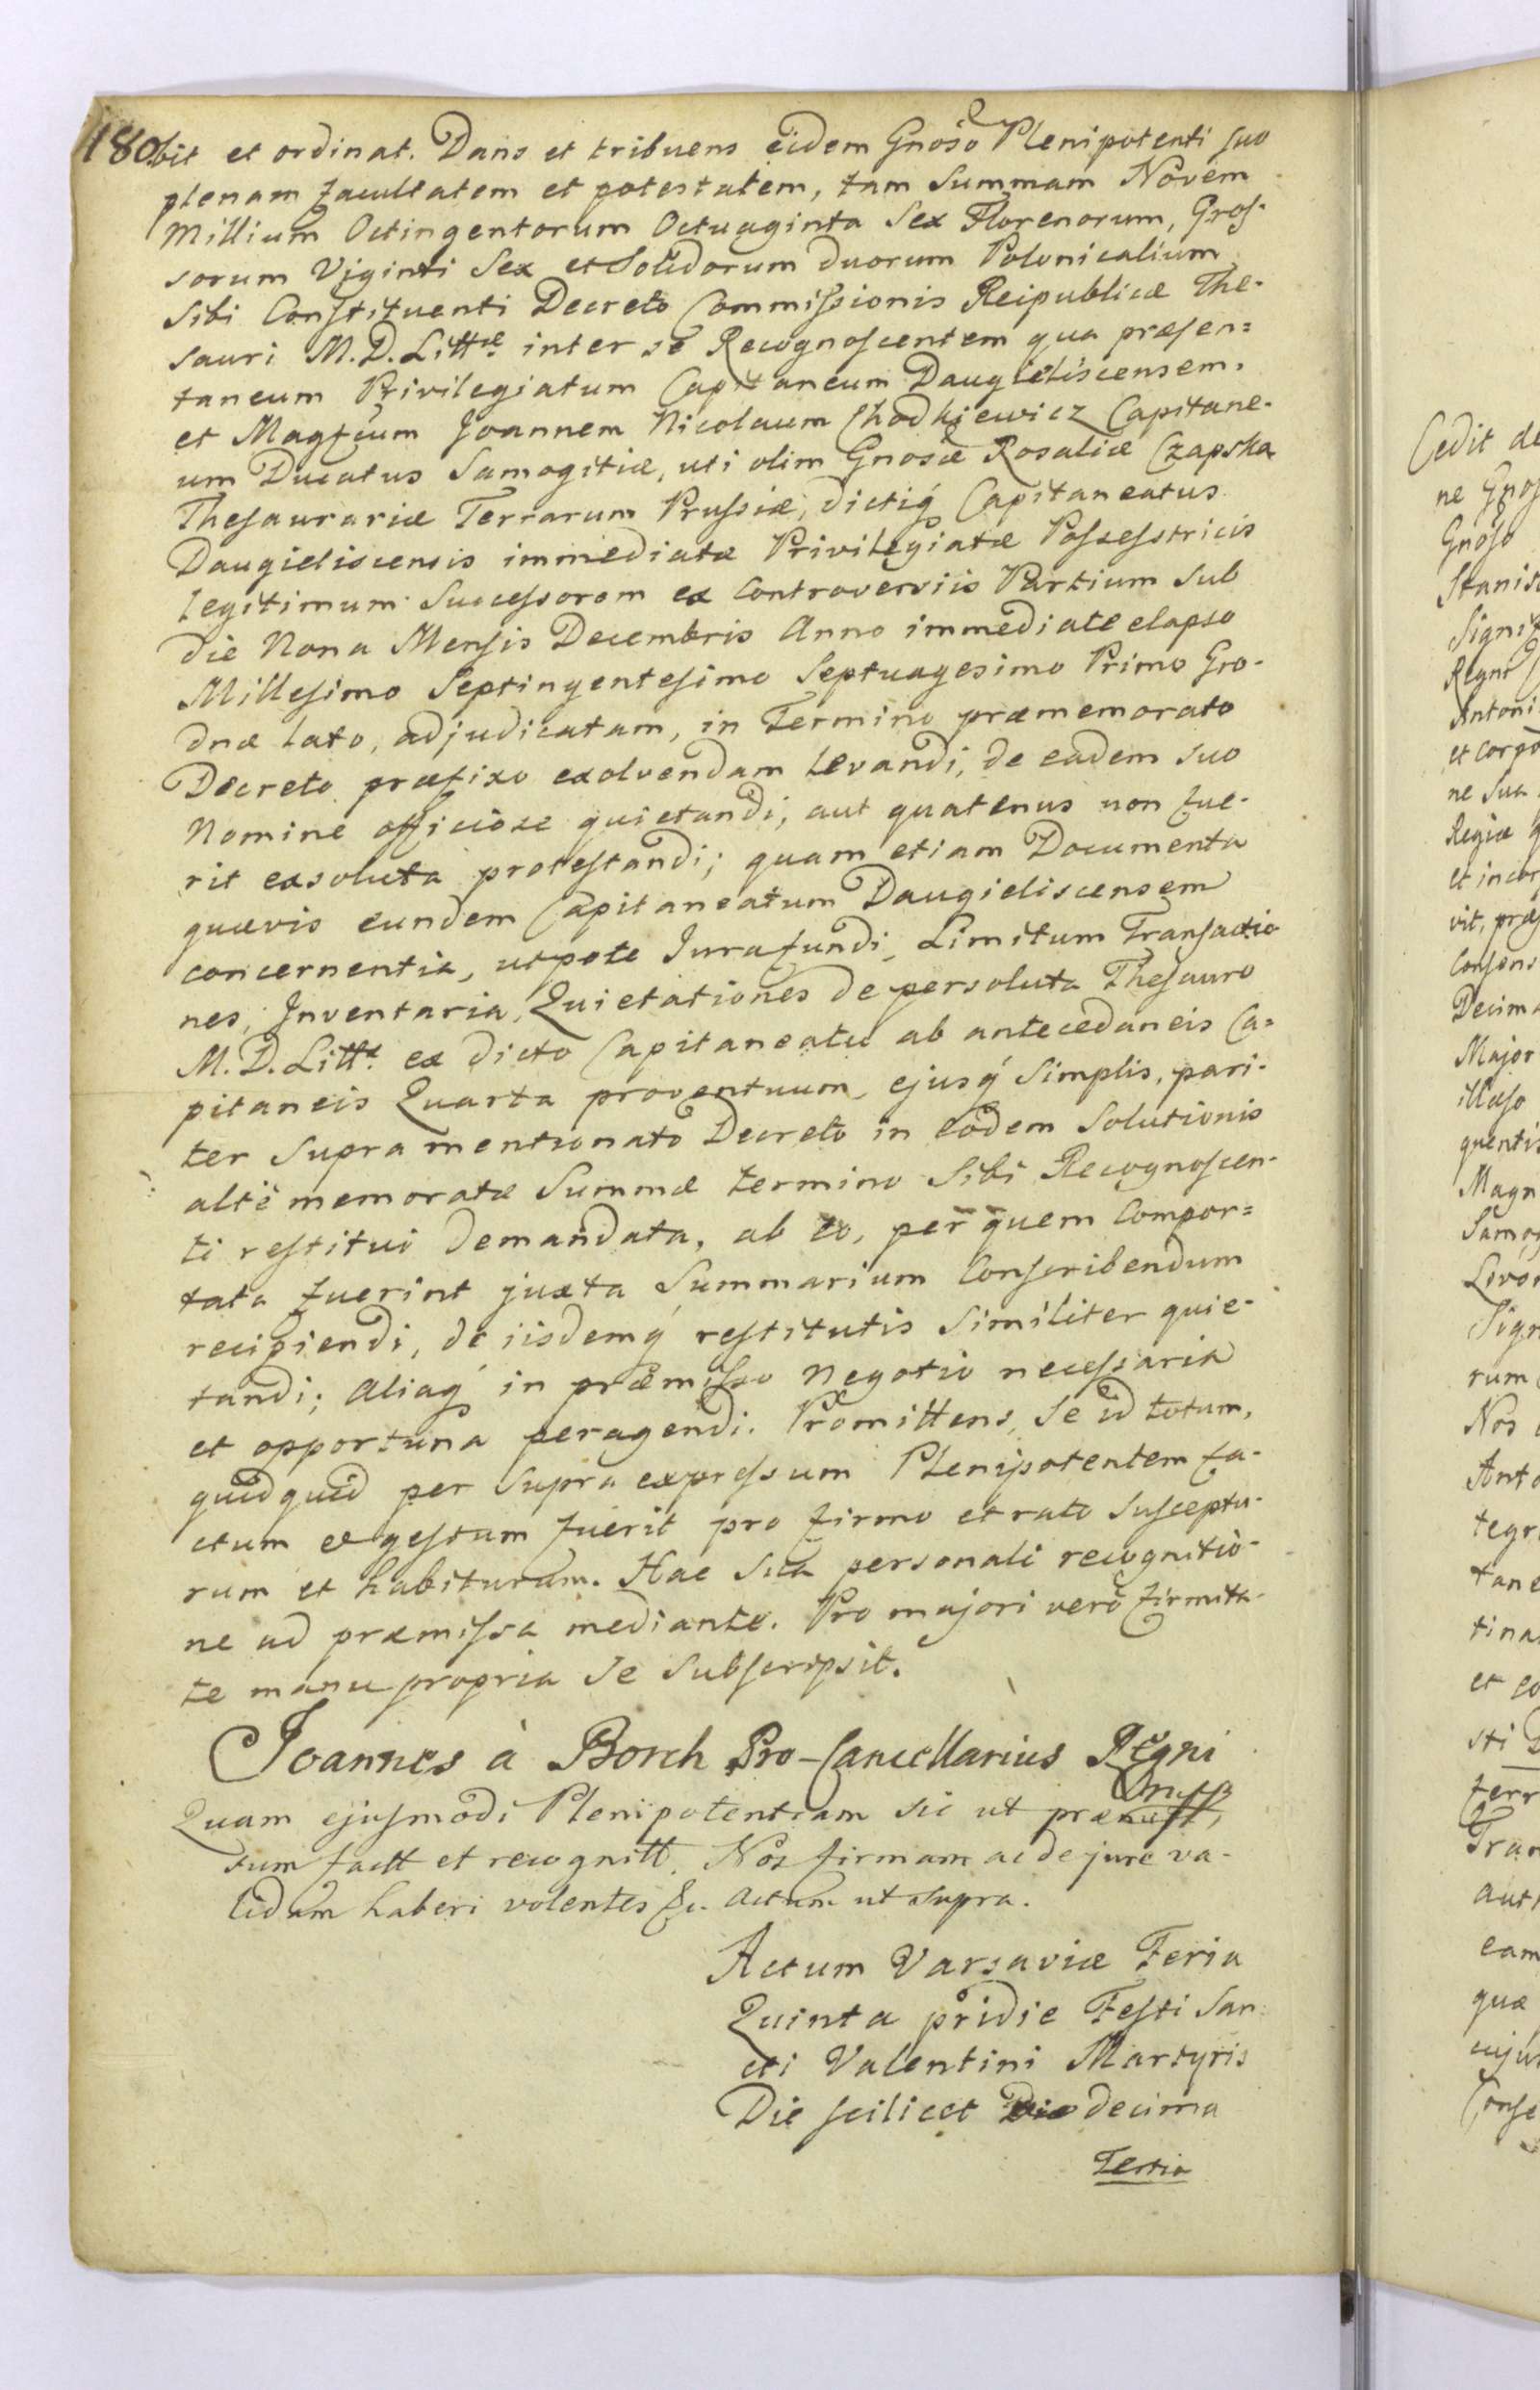 180
bit et ordinat. Dans et tribuens eidem Gnoso Plenipotenti suo
plenam facultatem et potestatem, tam Summam Novem
Millium Octingentorum Octuaginta Sex Florenorum, Gros-
sorum Viginti Sex et Solidorum duorum Polonicalium
Sibi Constituenti Decreto Commissionis Reipublicæ The-
sauri M. D. Littæ inter se Recognoscentem qua præsen=
taneum Privilegiatum Capitaneum Daugieliscensem.
et Magfcum Joannem Nicolaum Chodkiewicz Capitane-
um Ducatus Samogitiæ, uti olim Gnosæ Rosaliæ Czapska
Thesaurariæ Terrarum Prussiæ, dictiq́ Capitaneatus
Daugieliscensis immediatæ Privilegiatæ Possesstricis
legitimum Successorem ex Controversiis Partium Sub
die Nona Mensis Decembris Anno immediate elapso
Millesimo Septingentesimo Septuagesimo Primo Gro-
dnæ lato, adjudicatam, in Termino præmemorato
Decreto præfixo exolvendam levandi, de eadem suo
Nomine officiose quietandi, aut quatenus non fue-
rit exsoluta protestandi; quam etiam Documenta
quævis eundem Capitaneatum Daugieliscensem
concernentia, utpote Jura fundi, Limitum Transactio
nes, Inventaria, Quietationes de persoluta Thesauro
M. D. Litt. ex dicto Capitaneatu ab antecedaneis Ca=
pitaneis Quarta proventuum, ejusq́ Simplis, pari-
ter Supra mentionato Decreto in eodem Solutionis
altè memoratæ Summæ termino Sibi Recognoscen-
ti restitui demandata, ab eo, per quem Compor=
tata fuerint juxta Summarium Conscribendum
recipiendi, de iisdemq́ restitutis Similiter quie-
tandi; Aliaq́ in præmisso Negotio necessaria
et opportuna peragendi. Promittens, Se id totum,
quidquid per Supra expressum Plenipotentem fa-
ctum et gestum fuerit pro firmo et rato Susceptu-
rum et habiturum. Hac Sua personali recognitio-
ne ad præmissa mediante. Pro majori verò firmita-
te manu propria Se Subscripsit.
Joannes à Borch Pro-Cancellarius Regni
Quam ejusmodi Plenipotentiam sic ut
sum factt et recognitt, Nos firmam ac de jure va-
lidam haberi volentes &c. Actum ut supra.
Actum Varsaviæ Feria
Quinta pridie Festi San
cti Valentini Martyris
Die scilicet decima
Tertia

Cedit de
ne Gnos
Gnoso
Stanis
Signif
Regni
Antoni
et corpo
ne sua
Regiæ
et incor
vit, præ
Consens
Decima
Major
illæso
quenti
Magn
Samog
Livo
Sign
rum
Nos
Anto
tegr
tane
tina
et co
sti D
ferr
Tran
aut
eam
quæ
cujus
Conse